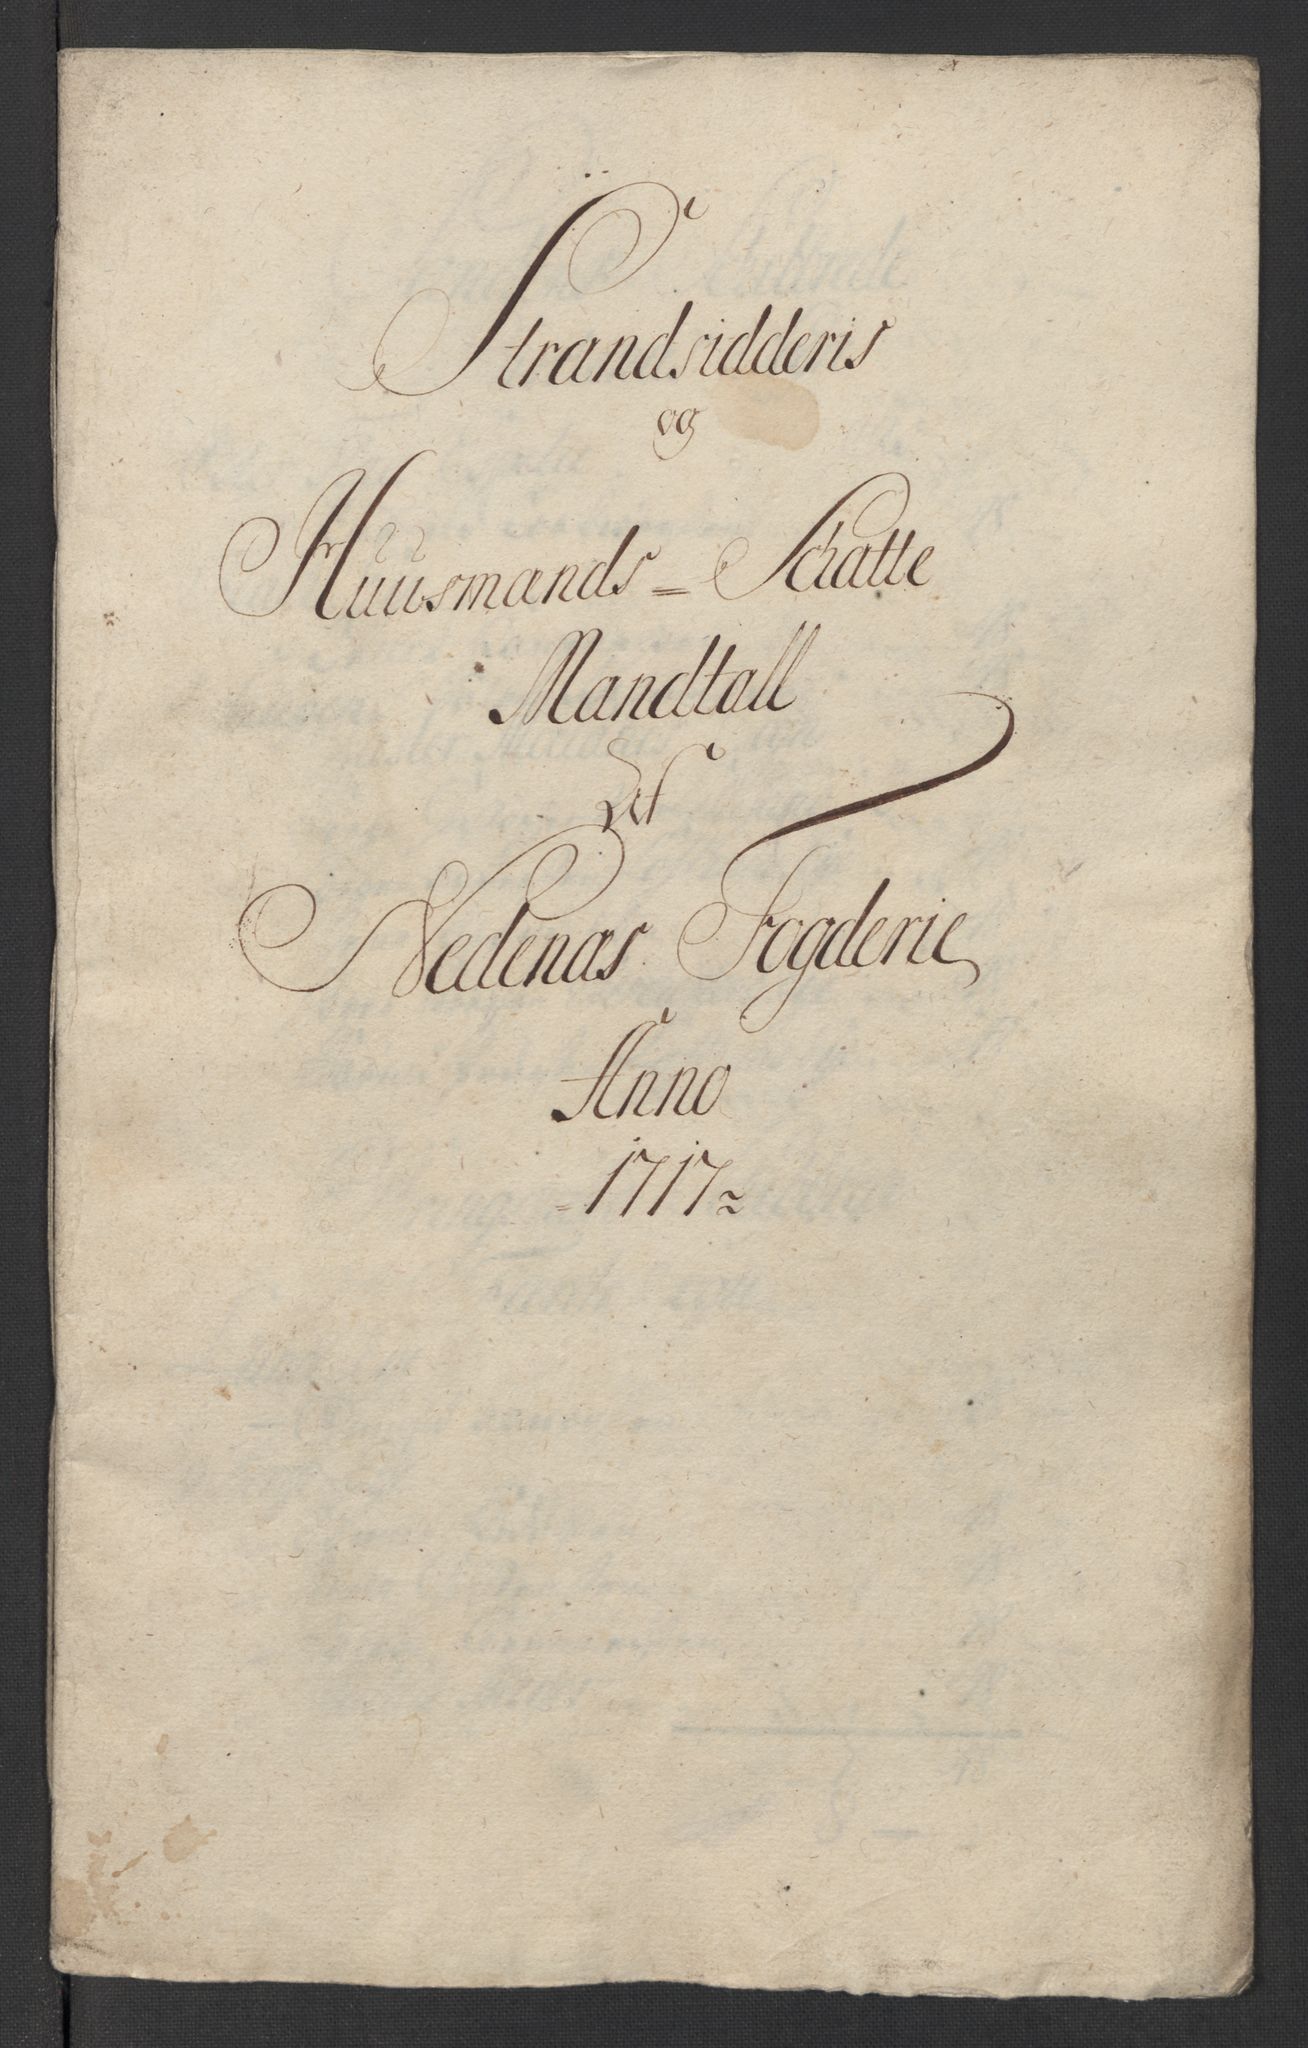 Strandsidderis
og
Huusmænds = Schatte
Mandtall
Af
Nedenæs Fogderie
Anno
= 1717 ~